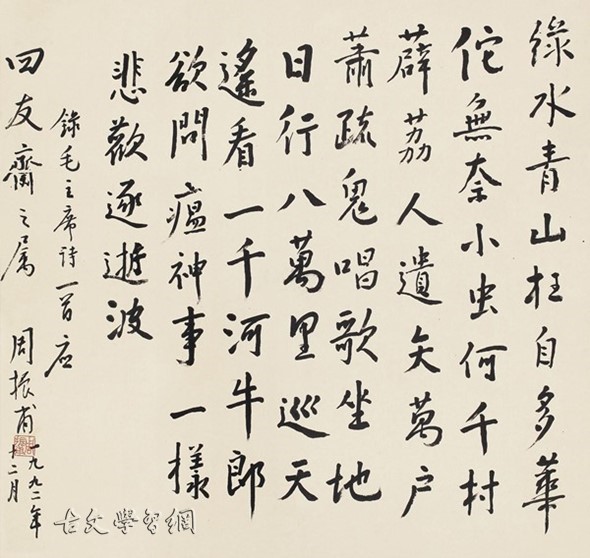 綠水青山枉自多華
佗無奈小虫何千村
薜荔人遺矢萬户
蕭疏鬼唱歌坐地
日行八萬里巡天
遙看一千河牛郎
欲問瘟神事一樣
悲歡逐逝波
錄毛主席詩一首应
四友齋之属
周振甫
一九九二年
十二月
古文學習網